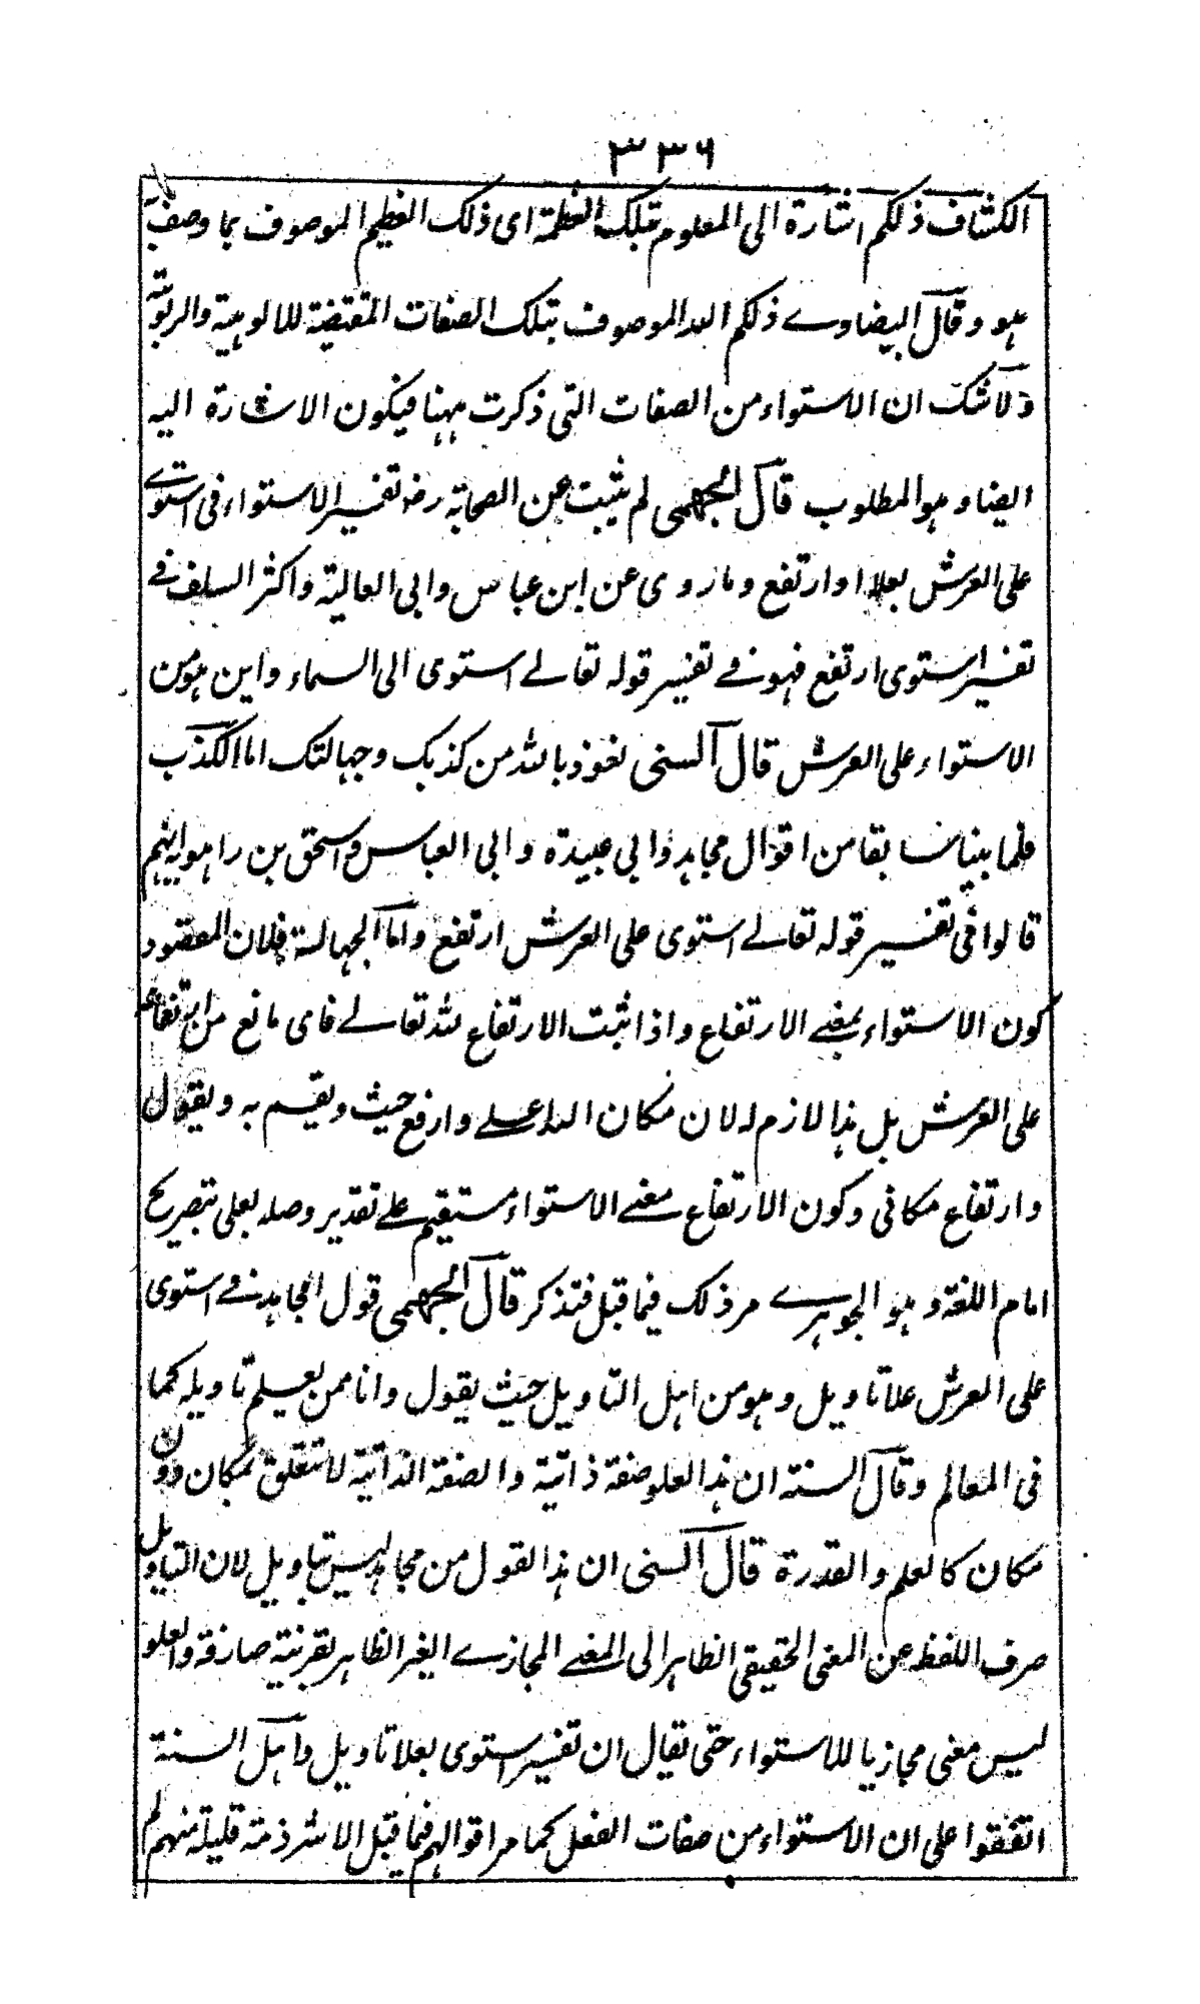 ٣٣٦
الكشاف ذلكم اشارة الى المعلوم بتلك العظمة اى ذلك العظيم الموصوف بما وصف
هو وقال البيضاوے ذلكم الله الموصوف بتلك الصفات المقتضية للالوهية والربوبية
ولا شك ان الاستواء من الصفات التى ذكرت ههنا فيكون الاشارة اليه
ايضا وهو المطلوب قال الجهمى لم يثبت عن الصحابة رض تفسير الاستواء فى استوے
على العرش بعلا او ارتفع وما روى عن ابن عباس وابى العالية واكثر السلف فے
تفسير استوى ارتفع فهو فے تفسير قوله تعالے استوى الى السماء واين هو من
الاستواء على العرش قال السنى نعوذ بالله من كذبك وجهالتك اما الكذب
فلما بينا سابقا من اقوال مجاهد وابى عبيدة وابى العباس واسحق بن راهويه انهم
قالوا فى تفسير قوله تعالے استوى على العرش ارتفع واما الجهالة فلان المقصود
كون الاستواء بمعنے الارتفاع واذا ثبت الارتفاع لله تعالے فاى مانع من ارتفاعه
على العرش بل هذا لازم له لان مكان الله اعلے وارفع حيث ويقسم به ويقول
وارتفاع مكانى وكون الارتفاع معنے الاستواء مستقيم علے تقدير وصله بعلى بتصريح
امام اللغة وهو الجوهرے مر ذلك فيما قبل فتذكر قال الجهمى قول المجاهد فے استوى
على العرش علا تاويل وهو من اهل التاويل حيث يقول وانا ممن يعلم تاويله كما
فى المعالم وقال السنة ان هذا العلو صفة ذاتية والصفة الذاتية لا تتعلق بمكان دون
مكان كالعلم والقدرة قال السنى ان هذا القول من مجاهد ليس بتاويل لان التاويل
صرف اللفظ عن المعنى الحقيقى الظاهر الى المعنے المجازے الغير الظاهر بقرينة صارفة والعلو
ليس معنى مجازيا للاستواء حتى يقال ان تفسير استوى بعلا تاويل واهل السنة
اتفقوا على ان الاستواء من صفات الفعل كما مر اقوالهم فيما قبل الا شرذمة قليلة منهم لم